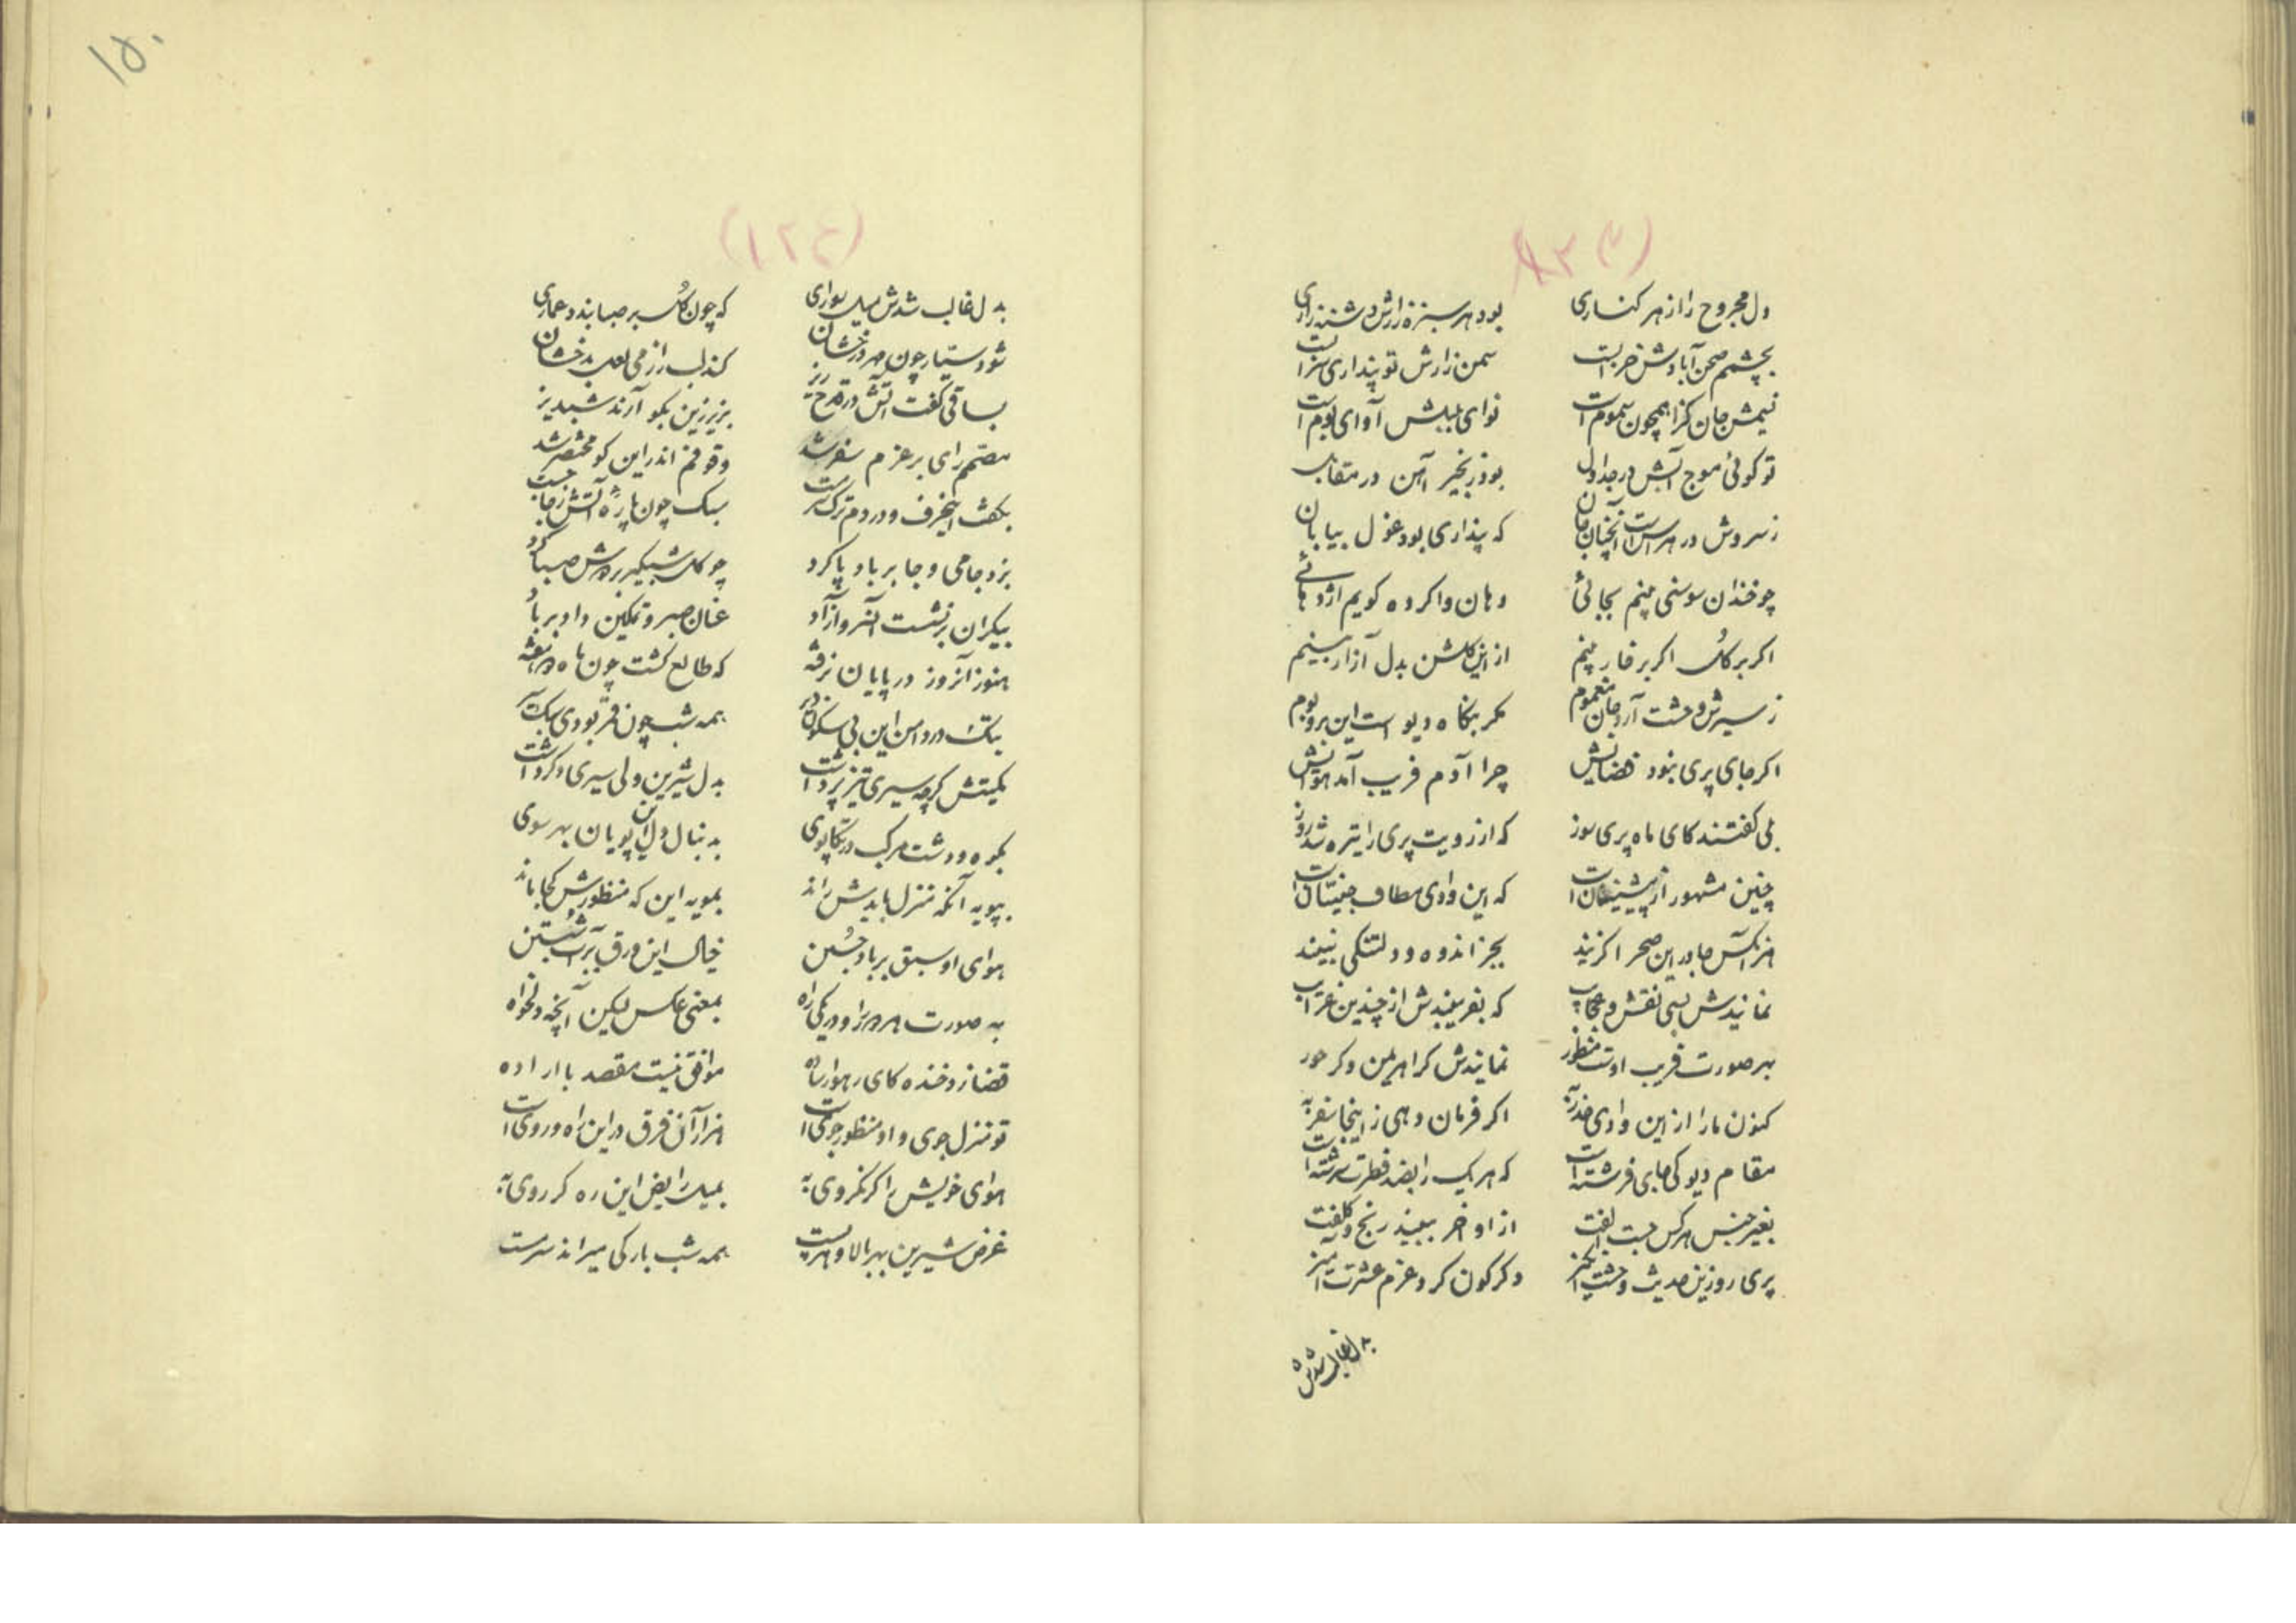 ۱۵۰
دل مجروح را از هر کناری بود هر سبزه زارش دشنه زاری
بچشمم صحن آبادش خرابست سمن زارش تو پنداری سرابست
نسیمش جان گزا همچون سمومست نوای بلبلش آوای بومست
تو گوئی موج آبش در جداول بود زنجیر آهن در مقابل
ز سروش در هراس است آنچنان جان که پنداری بود غول بیابان
چو خندان سوسنی بینم بجائی دهان وا کرده گویم اژدهائی
اگر بر گل اگر بر خار بینم از این گلشن بدل آزار بینم
ز سیرش وحشت آرد جان مغموم مگر بنگاه دیو است این بر و بوم
اگر جای پری نبود فضایش چرا آدم فریب آمد هوایش
بلی گفتند کای ماه پری سوز که از رویت پری را تیره شد روز
چنین مشهور از پیشینیان است که این وادی مطاف جنیان است
هر آنکس جا در این صحرا گزیند بجز اندوه و دلتنگی نبیند
نمایندش بسی نقش عجایب که بفریبندش از چندین غرایب
بهر صورت فریب اوست منظور نمایندش گر اهریمن وگر حور
کنون ما را از این وادی حذر به اگر فرمان دهی ز اینجا سفر به
مقام دیو کی جای فرشته است که هر یک را بضد فطرت سرشته است
بغیر جنس هر کس جست الفت از او آخر ببیند رنج و کلفت
پری رو زین حدیث وحشت انگیز دگرگون کرد عزم عشرت آمیز
بدل غالب شدش
(۱۲۴)
بدل غالب شدش میل سواری که چون گل بر صبا بندد عماری
شود سیار چون مهر درخشان کند لب را ز می لعل بدخشان
بساقی گفت آتش در قدح ریز بزیر زین بگو آرند شبدیز
مصمم رای بر عزم سفر شد وقوفم اندر این کو مختصر شد
بگفت اینحرف و در دم ترک سر مست سبک چون پاره آتش ز جا جست
بزد جامی و جا بر باد پا کرد چو گل شبگیر بر دوش صبا کرد
بیکران بر نشست آنسرو آزاد عنان صبر و تمکین داد بر باد
هنوز آنروز در پایان نرفته که طالع گشت چون ماه دو هفته
بتک در دامن این بی سکون در همه شب چون قمر بودی سبک سر
بگیتش گرچه سیری تیز تر داشت بدل شیرین ولی سیری دگر داشت
بکوه و دشت مرکب در تکاپوی به دنبال دل این پویان بهر سوی
بپویه آنکه منزل بایدش راند بمویه این که منظورش کجا ماند
هوای او سبق بر باد جستن خیال این ورق بر آب شستن
به صورت هر دو را رو در یکی راه بمعنی عکس لیکن آنچه دلخواه
قضا زد خنده کای رهوار ساده موافق نیست مقصد با اراده
تو منزل جوی و او منظور جوی است هزار آن فرق در این راه و روی است
هوای خویش را گر نگروی به بمیل رایض این ره گر روی به
غرض شیرین بهر بالا و هر پست همه شب بارگی میراند سرمست